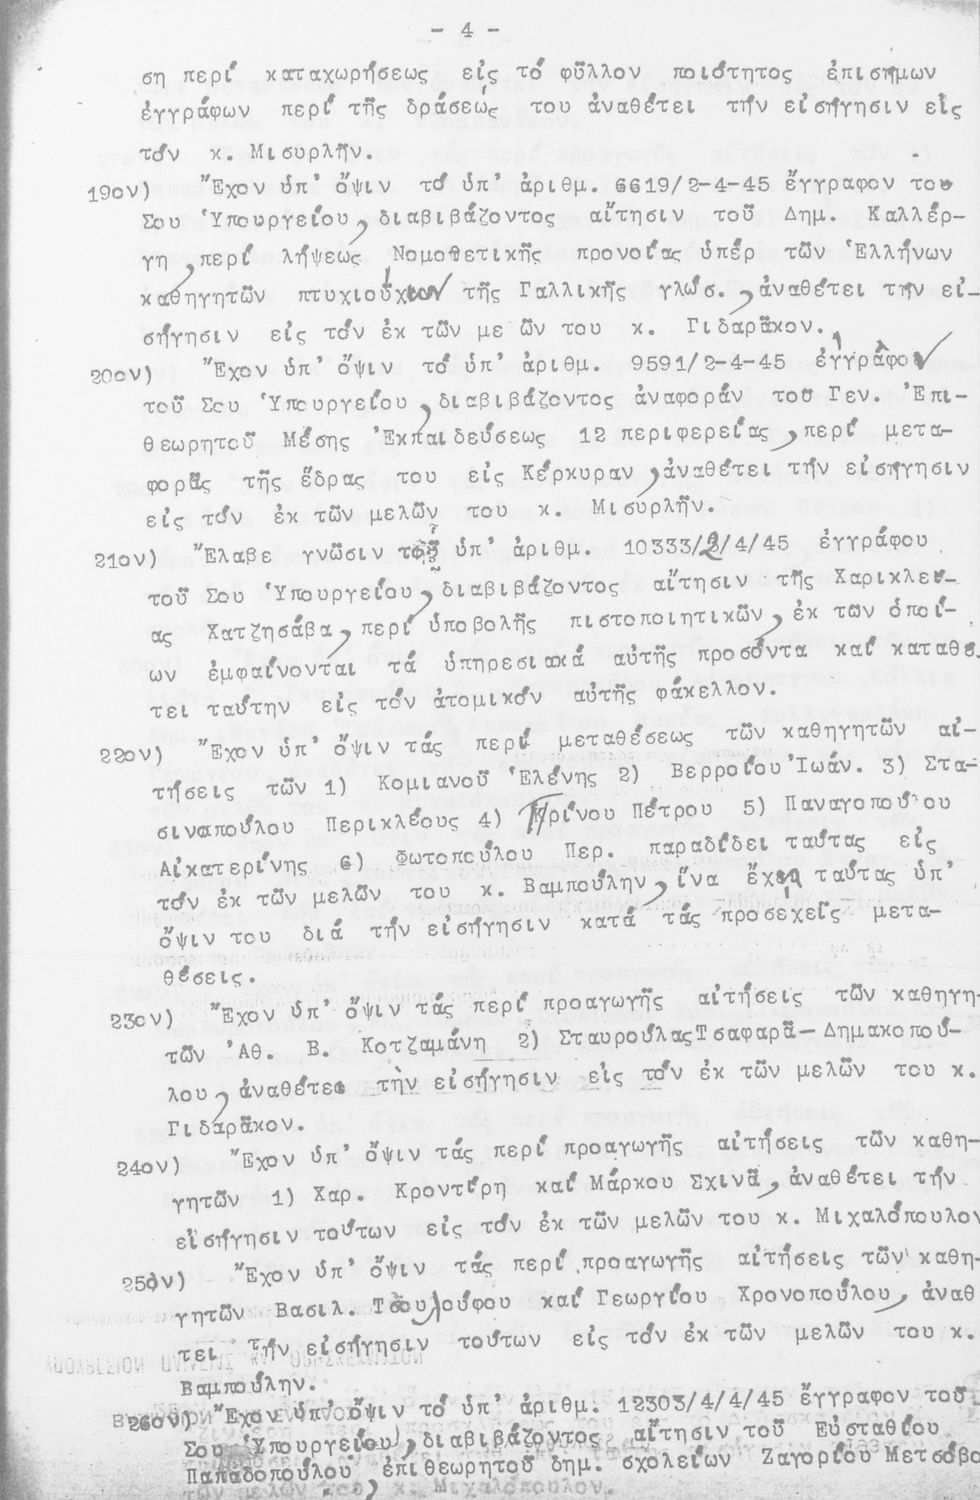 - 4 -
ση περί καταχωρήσεως εἰς τό φῦλλον ποιότητος ἐπισήμων
ἐγγράφων περί τῆς δράσεώς του ἀναθέτει τήν εἰσήγησιν εἰς
τόν κ. Μισυρλῆν.
19ον) Ἔχον ὑπ' ὄψιν τό ὑπ' ἀριθμ. 6619/2-4-45 ἔγγραφον του
Σου Ὑπουργείου, διαβιβάζοντος αἴτησιν τοῦ Δημ. Καλλέρ-
γη, περί λήψεως Νομοθετικῆς προνοίας ὑπέρ τῶν Ἑλλήνων
καθηγητῶν πτυχιούχων τῆς Γαλλικῆς γλώσ., ἀναθέτει τήν εἰ-
σήγησιν εἰς τόν ἐκ τῶν με ῶν του κ. Γιδαρᾶκον.
20ον) Ἔχον ὑπ' ὄψιν τό ὑπ' ἀριθμ. 9591/2-4-45 ἔγγραφον
τοῦ Σου Ὑπουργείου, διαβιβάζοντος ἀναφοράν τοῦ Γεν. Ἐπι-
θεωρητοῦ Μέσης Ἐκπαιδεύσεως 12 περιφερείας, περί μετα-
φορᾶς τῆς ἕδρας του εἰς Κέρκυραν, ἀναθέτει τήν εἰσήγησιν
εἰς τόν ἐκ τῶν μελῶν του κ. Μισυρλῆν.
21ον) Ἔλαβε γνῶσιν τοῦ ὑπ' ἀριθμ. 10333/2/4/45 ἐγγράφου
τοῦ Σου Ὑπουργείου, διαβιβάζοντος αἴτησιν τῆς Χαρικλεί-
ας Χατζησάβα, περί ὑποβολῆς πιστοποιητικῶν, ἐκ των ὁποί-
ων ἐμφαίνονται τά ὑπηρεσιακά αὐτῆς προσόντα καί καταθέ
τει ταύτην εἰς τόν ἀτομικόν αὐτῆς φάκελλον.
22ον) Ἔχον ὑπ' ὄψιν τάς περί μεταθέσεως τῶν καθηγητῶν αἰ-
τήσεις τῶν 1) Κομιανοῦ Ἑλένης 2) Βερροίου Ἰωάν. 3) Στα-
σινοπούλου Περικλέους 4) Πρίνου Πέτρου 5) Παναγοπούλου
Αἰκατερίνης 6) Φωτοπούλου Περ. παραδίδει ταύτας εἰς
τόν ἐκ τῶν μελῶν του κ. Βαμπούλην, ἵνα ἔχῃ ταύτας ὑπ'
ὄψιν του διά τήν εἰσήγησιν κατά τάς προσεχεῖς μετα-
θέσεις.
23ον) Ἔχον ὑπ' ὄψιν τάς περί προαγωγῆς αἰτήσεις τῶν καθηγη-
τῶν Ἀθ. Β. Κοτζαμάνη 2) Σταυρούλας Τσαφαρᾶ-Δημακοπού-
λου, ἀναθέτει τὴν εἰσήγησιν εἰς τόν ἐκ τῶν μελῶν του κ.
Γιδαρᾶκον.
24ον) Ἔχον ὑπ' ὄψιν τάς περί προαγωγῆς αἰτήσεις τῶν καθη-
γητῶν 1) Χαρ. Κροντήρη καί Μάρκου Σχινᾶ, ἀναθέτει τήν
εἰσήγησιν τούτων εἰς τόν ἐκ τῶν μελῶν του κ. Μιχαλόπουλον
25ον) Ἔχον ὑπ' ὄψιν τάς περί προαγωγῆς αἰτήσεις τῶν καθη-
γητῶν Βασιλ. Τσουλούφου καί Γεωργίου Χρονοπούλου, ἀναθ
τει τήν εἰσήγησιν τούτων εἰς τόν ἐκ τῶν μελῶν του κ.
Βαμπούλην.
26ον) Ἔχον ὑπ' ὄψιν τό ὑπ' ἀριθμ. 12303/4/4/45 ἔγγραφον τοῦ
Σου Ὑπουργείου, διαβιβάζοντος αἴτησιν τοῦ Εὐσταθίου
Παπαδοπούλου ἐπιθεωρητοῦ δημ. σχολείων Ζαγορίου Μετσόβο